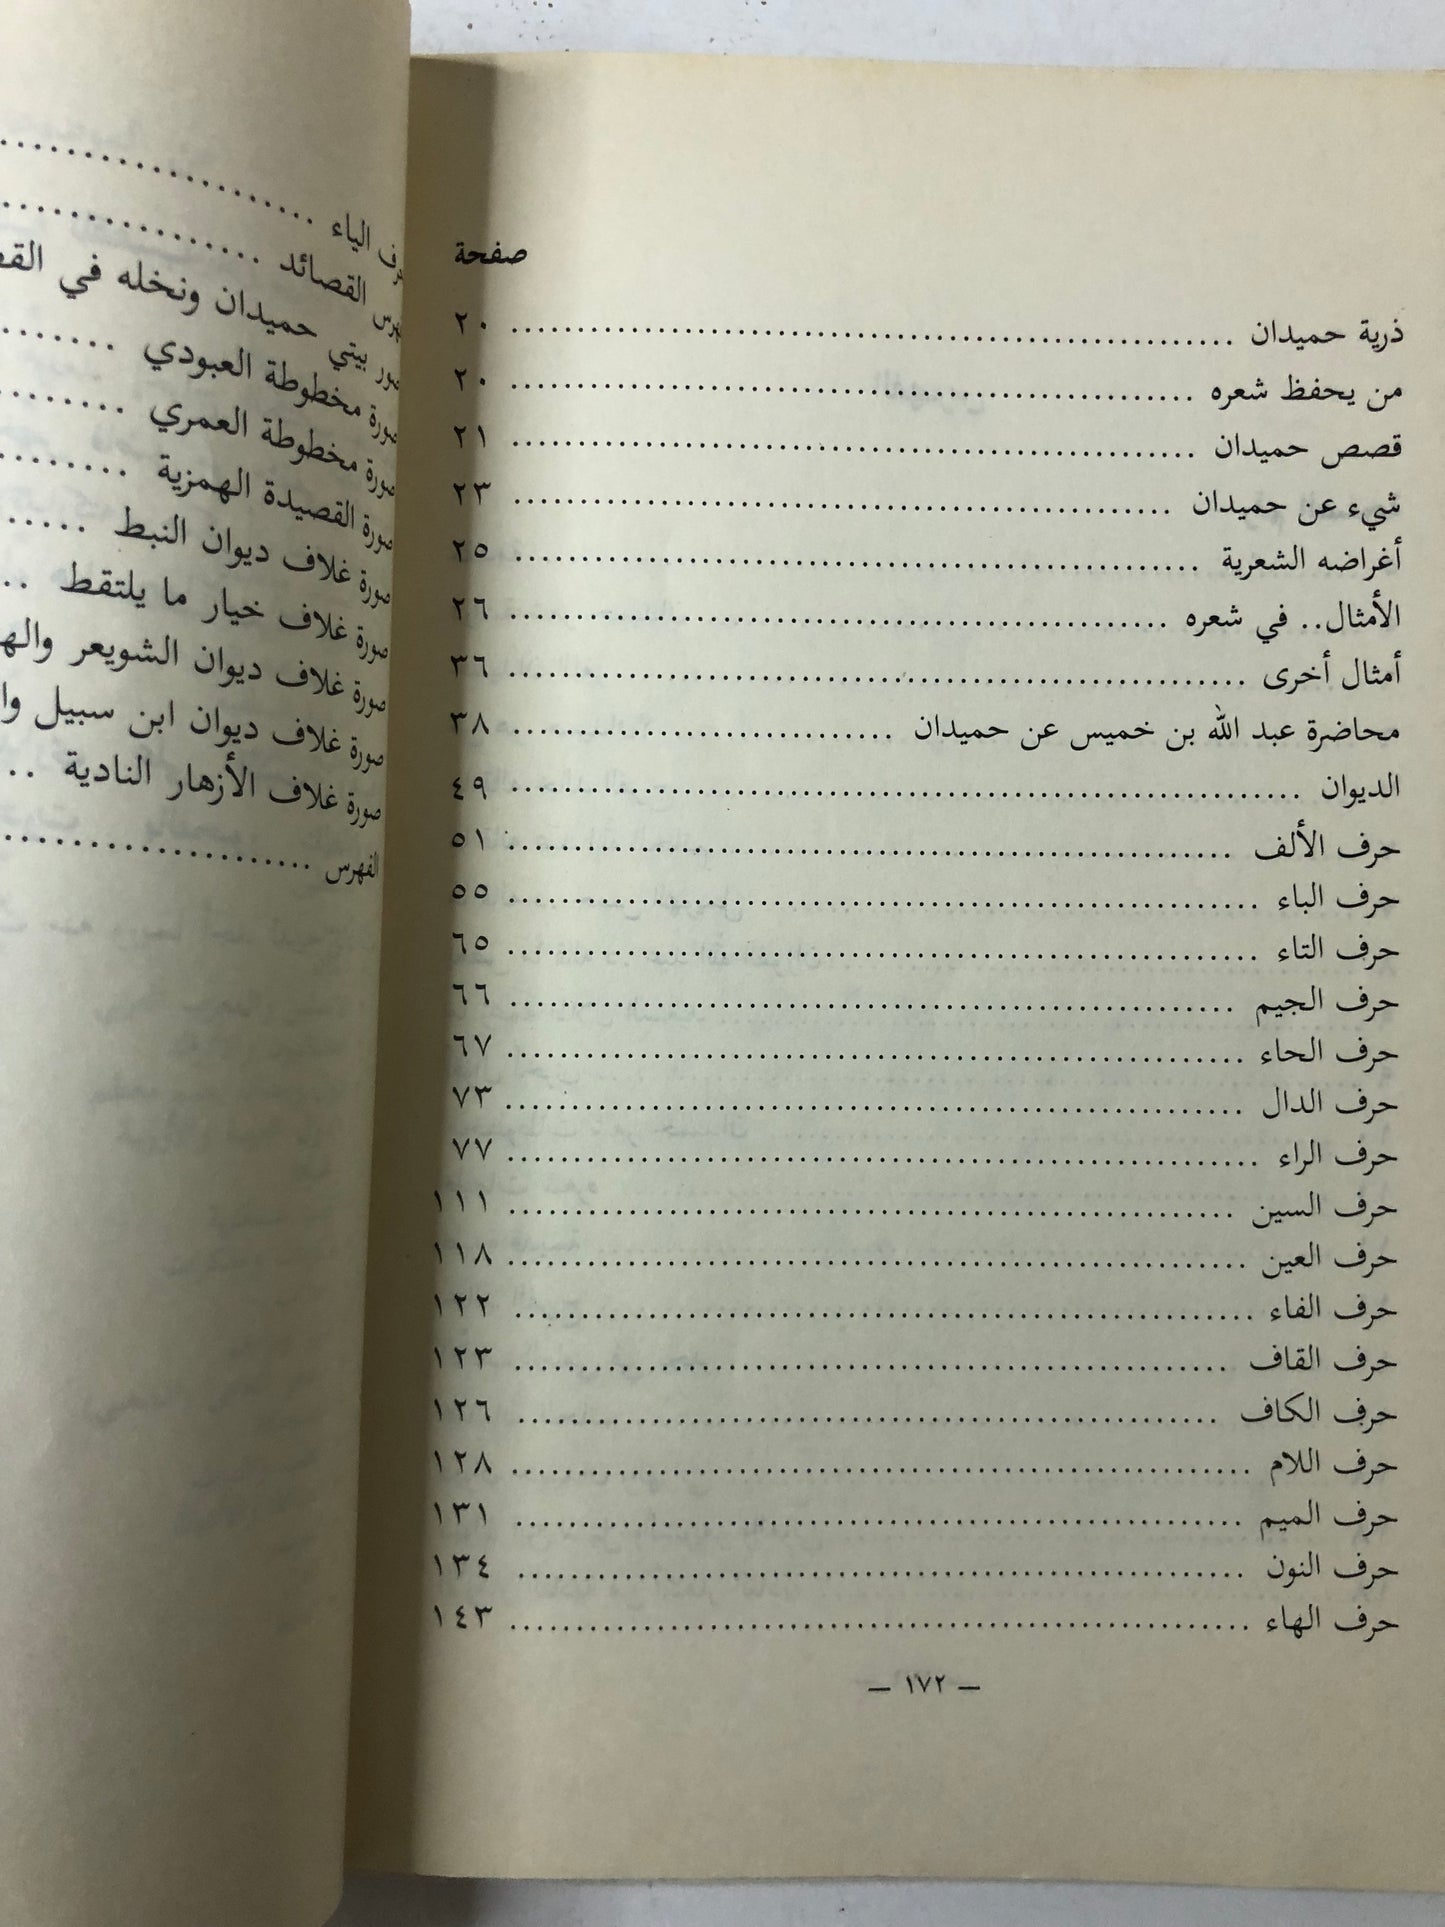 صفحة
ذرية حميدان ........ ٢٠
من يحفظ شعره ........ ٢٠
قصص حميدان ........ ٢١
شيء عن حميدان ........ ٢٣
أغراضه الشعرية ........ ٢٥
الأمثال.. في شعره ........ ٢٦
أمثال أخرى ........ ٣٦
محاضرة عبد الله بن خميس عن حميدان ........ ٣٨
الديوان ........ ٤٩
حرف الألف ........ ٥١
حرف الباء ........ ٥٥
حرف التاء ........ ٦٥
حرف الجيم ........ ٦٦
حرف الحاء ........ ٦٧
حرف الدال ........ ٧٣
حرف الراء ........ ٧٧
حرف السين ........ ١١١
حرف العين ........ ١١٨
حرف الفاء ........ ١٢٢
حرف القاف ........ ١٢٣
حرف الكاف ........ ١٢٦
حرف اللام ........ ١٢٨
حرف الميم ........ ١٣١
حرف النون ........ ١٣٤
حرف الهاء ........ ١٤٣
— ١٧٢ —
الياء ........
القصائد ........
بيتي حميدان ونخله في
صورة مخطوطة العبودي ........
صورة مخطوطة العمري ........
صورة القصيدة الهمزية ........
صورة غلاف ديوان النبط ........
صورة غلاف خيار ما يلتقط ..
صورة غلاف ديوان الشويعر
صورة غلاف ديوان ابن سبيل
صورة غلاف الأزهار النادية ..
الفهرس ........